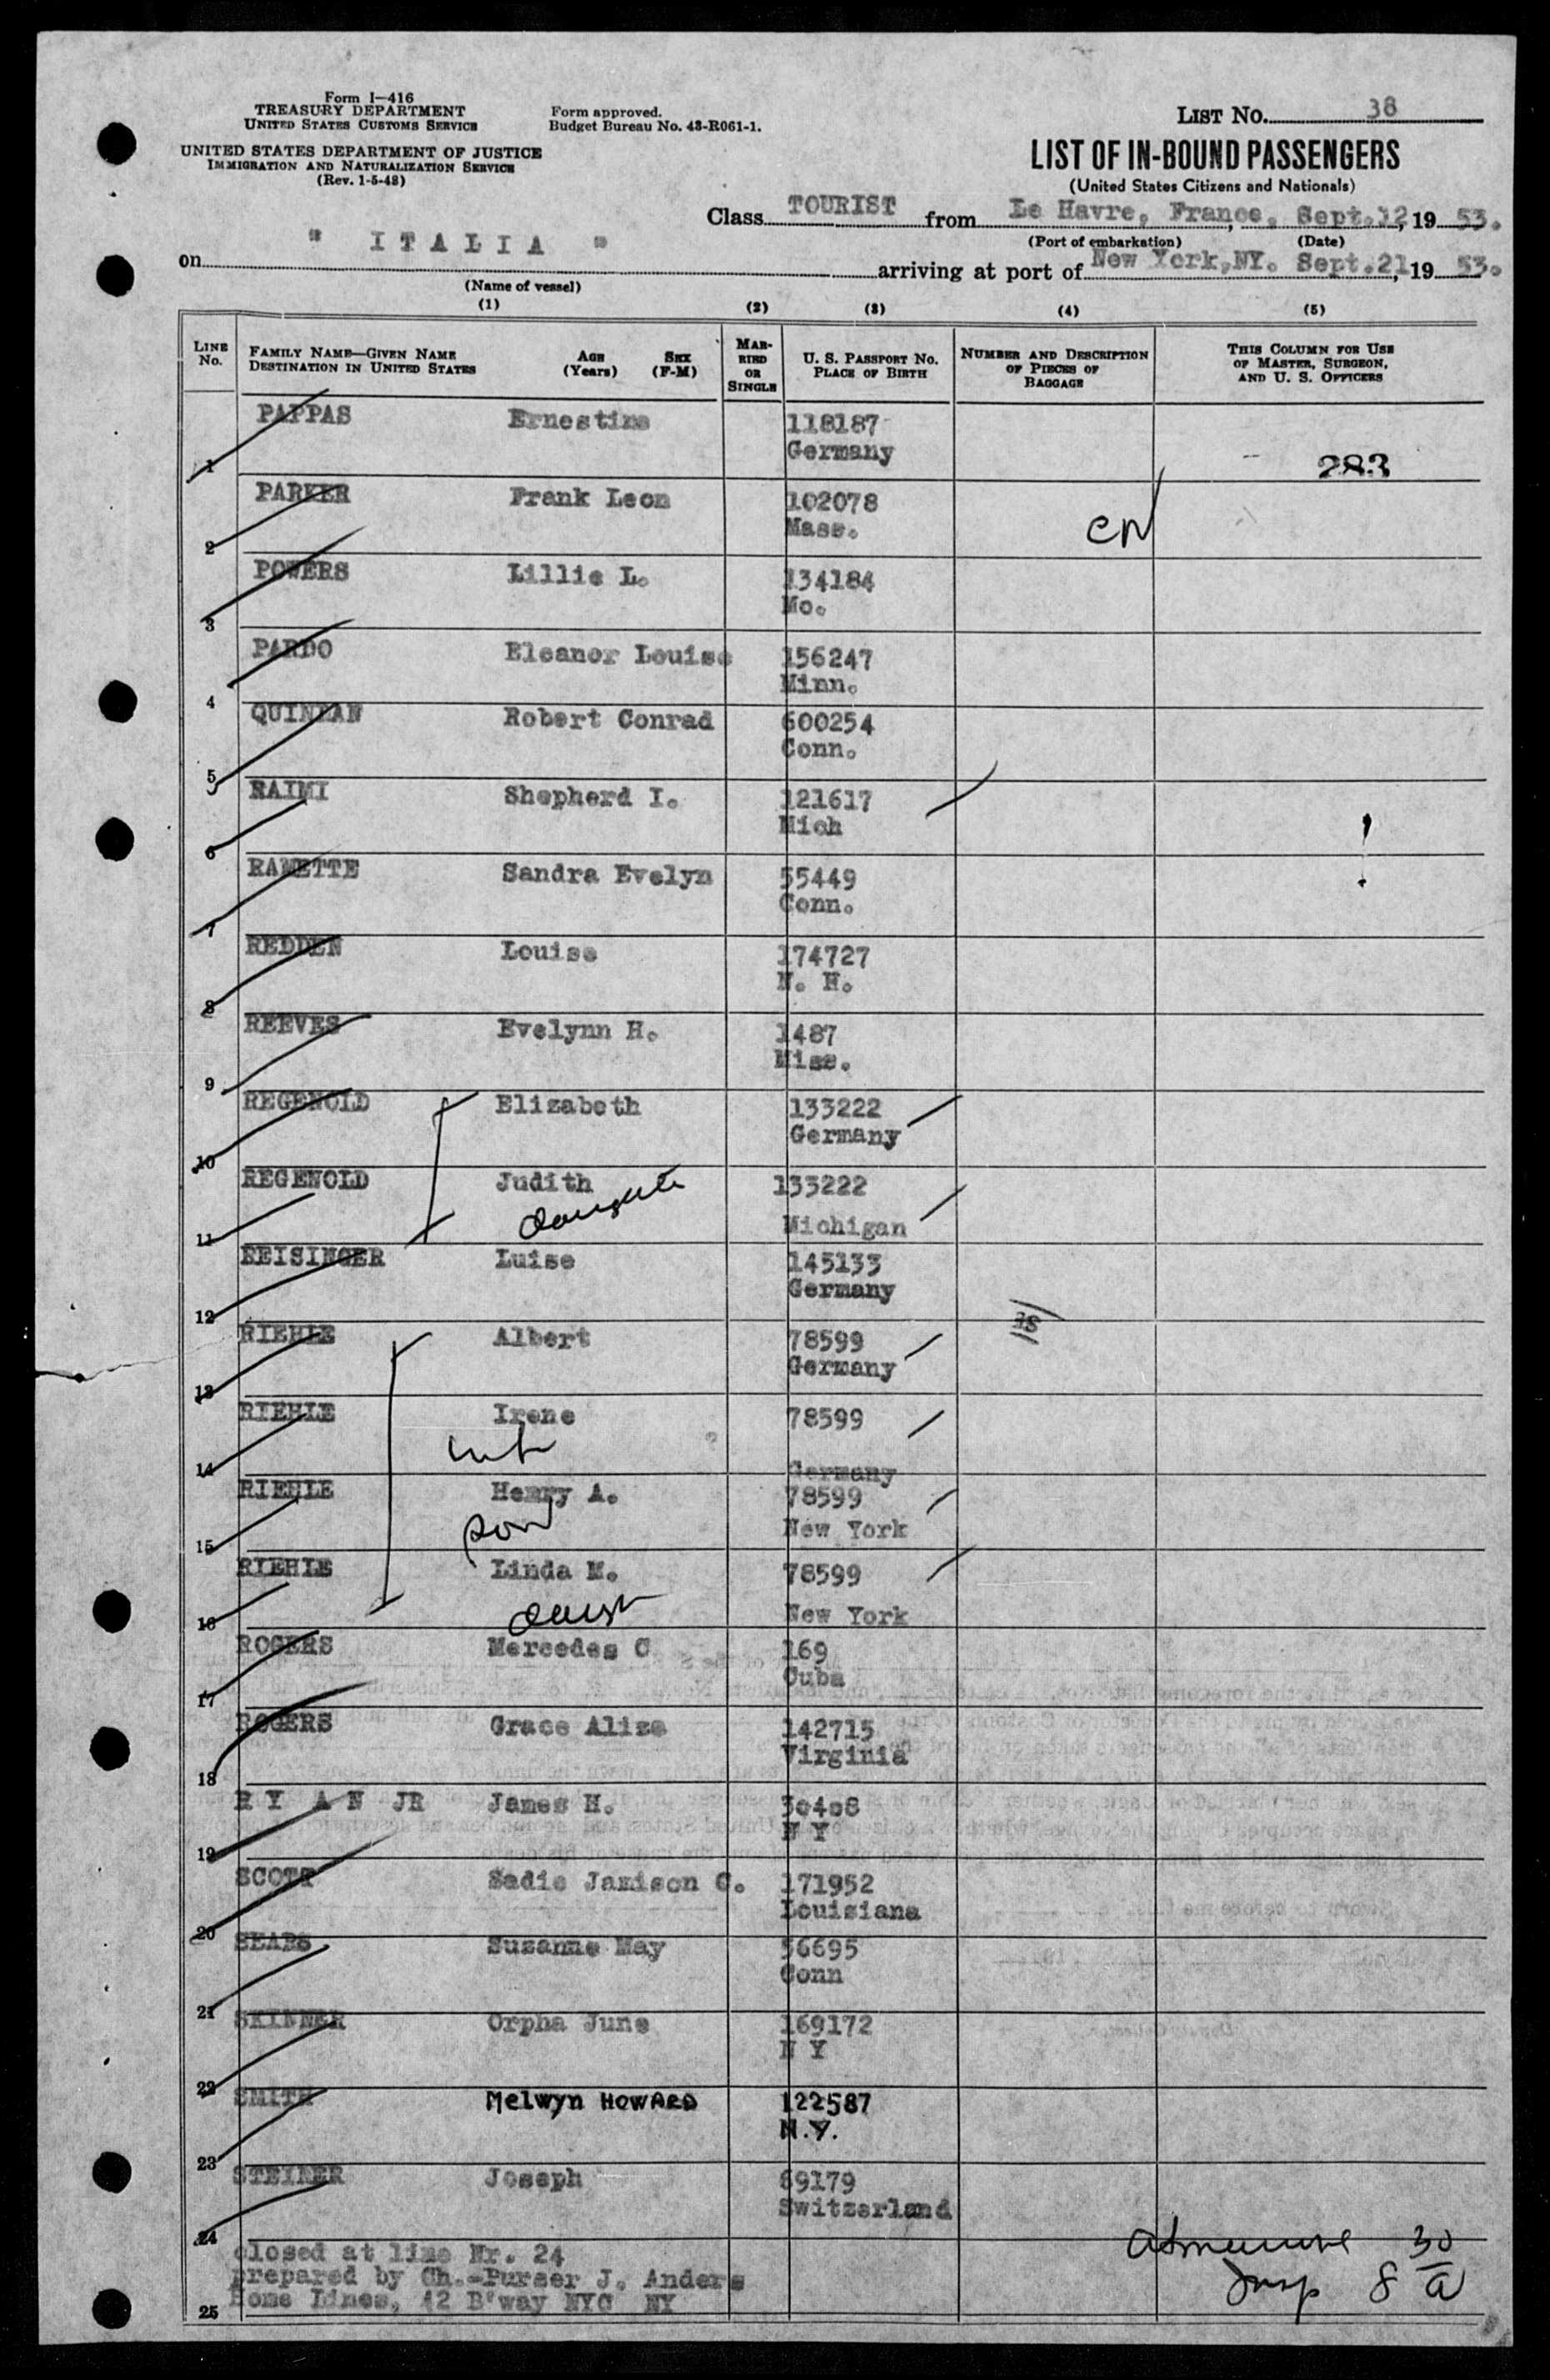 Form I—416
TREASURY DEPARTMENT
UNITED STATES CUSTOMS SERVICE
UNITED STATES DEPARTMENT OF JUSTICE
IMMIGRATION AND NATURALIZATION SERVICE
(Rev. 1-5-48)
Form approved.
Budget Bureau No. 43-R061-1.
LIST NO. 38
LIST OF IN-BOUND PASSENGERS
(United States Citizens and Nationals)
Class TOURIST from Le Havre, France, Sept.12, 19 53.
(Port of embarkation) (Date)
on " I T A L I A " arriving at port of New York,NY. Sept.21, 19 53.
(Name of vessel)
(1) (2) (3) (4) (5)
LINE No. FAMILY NAME—GIVEN NAME DESTINATION IN UNITED STATES AGE (Years) SEX (F-M) MARRIED OR SINGLE U. S. PASSPORT NO. PLACE OF BIRTH NUMBER AND DESCRIPTION OF PIECES OF BAGGAGE THIS COLUMN FOR USE OF MASTER, SURGEON, AND U. S. OFFICERS
1 PAPPAS Ernestine 118187
Germany 283
2 PARKER Frank Leon 102078
Mass.
3 POWERS Lillie L. 134184
Mo.
4 PARDO Eleanor Louise 156247
Minn.
5 QUINLAN Robert Conrad 600254
Conn.
6 RAIMI Shepherd I. 121617
Mich
7 RAMETTE Sandra Evelyn 55449
Conn.
8 REDDEN Louise 174727
N. H.
9 REEVES Evelynn H. 1487
Miss.
10 REGENOLD Elizabeth 133222
Germany
11 REGENOLD Judith 133222
daughter Michigan
12 REISINGER Luise 145133
Germany
38
13 RIEHLE Albert 78599
Germany
14 RIEHLE Irene 78599
Germany
15 RIEHLE Henry A. 78599
son New York
16 RIEHLE Linda M. 78599
daugh New York
17 ROGERS Mercedes C 169
Cuba
18 ROGERS Grace Alize 142715
Virginia
19 R Y A N JR James H. 30408
N Y
20 SCOTT Sadie Jamison C. 171952
Louisiana
21 SEARS Suzanne May 56695
Conn
22 SKINNER Orpha June 169172
N Y
23 SMITH Melwyn HOWARD 122587
N.Y.
24 STEINER Joseph 69179
Switzerland
closed at line Nr. 24
prepared by Ch.-Purser J. Anders
25 Home Lines, 42 B'way NYC NY
30
Insp 8